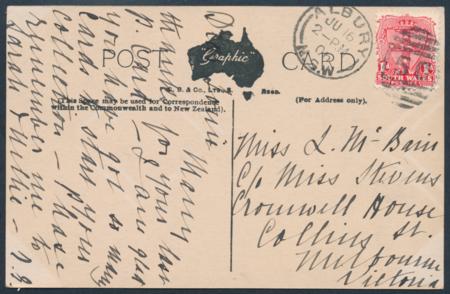 POST
"Graphic"
CARD
(This Space may be used for Correspondence
within the Commonwealth and to New Zealand).
(For Address only).
ALBURY
JU 16
2 - PM
N.S.W
WALES
Many
thanks for your last
P. Card - I am glad
you have got so many
Cards to start your
collection - Please
remember me to
Sarah & Nellie -
Miss L. McBain
C/o Miss Stevens
Cromwell House
Collins St.
Melbourne
Victoria